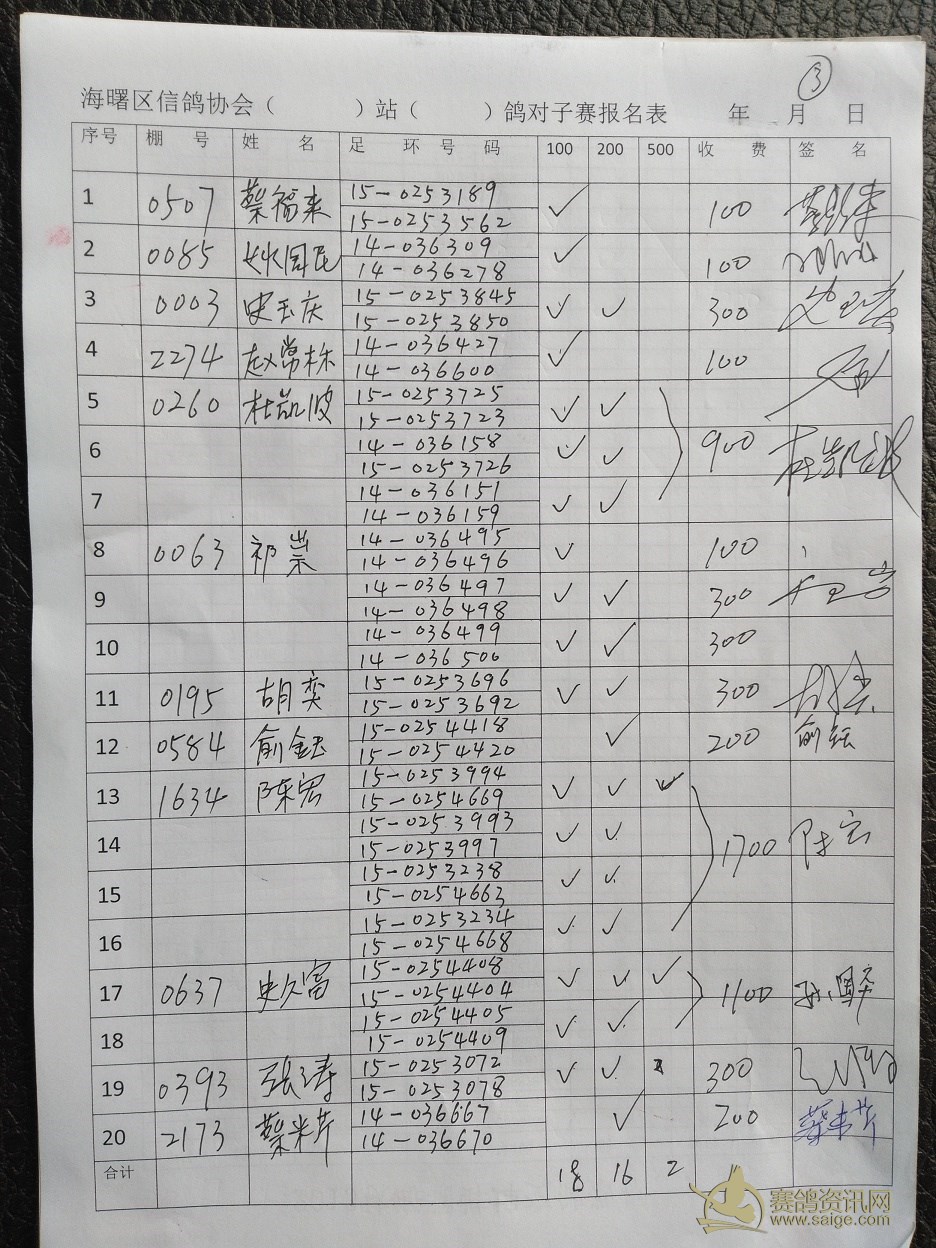 ③
海曙区信鸽协会（ ）站（ ）鸽对子赛报名表 年 月 日
序号 棚号 姓名 足环号码 100 200 500 收费 签名
1 0507 蔡福来 15-0253189 ✓ 100
15-0253562
2 0085 国民 14-036309 ✓ 100
14-036278
3 0003 史玉庆 15-0253845 ✓ ✓ 300
15-0253850
4 2274 赵常林 14-036427 ✓ 100
14-036600
5 0260 杜凯波 15-0253725 ✓ ✓
15-0253723
6 14-036158 ✓ ✓ 900 杜凯波
15-0253726
7 14-036151 ✓ ✓
14-036159
8 0063 祁崇 14-036495 ✓ 100
14-036496
9 14-036497 ✓ ✓ 300
14-036498
10 14-036499 ✓ ✓ 300
14-036500
11 0195 胡奕 15-0253696 ✓ ✓ 300
15-0253692
12 0584 俞钰 15-0254418 ✓ 200 俞钰
15-0254420
13 1634 陈宏 15-0253994 ✓ ✓ ✓
15-0254669
14 15-0253993 ✓ ✓ 1700 陈宏
15-0253997
15 15-0253238 ✓ ✓
15-0254663
16 15-0253234 ✓ ✓
15-0254668
17 0637 史久富 15-0254408 ✓ ✓ ✓ 1100
15-0254404
18 15-0254405 ✓ ✓
15-0254409
19 0393 张涛 15-0253072 ✓ ✓ 300
15-0253078
20 2173 蔡米芹 14-036667 ✓ 200 蔡米芹
14-036670
合计 18 16 2
赛鸽资讯网
www.saige.com